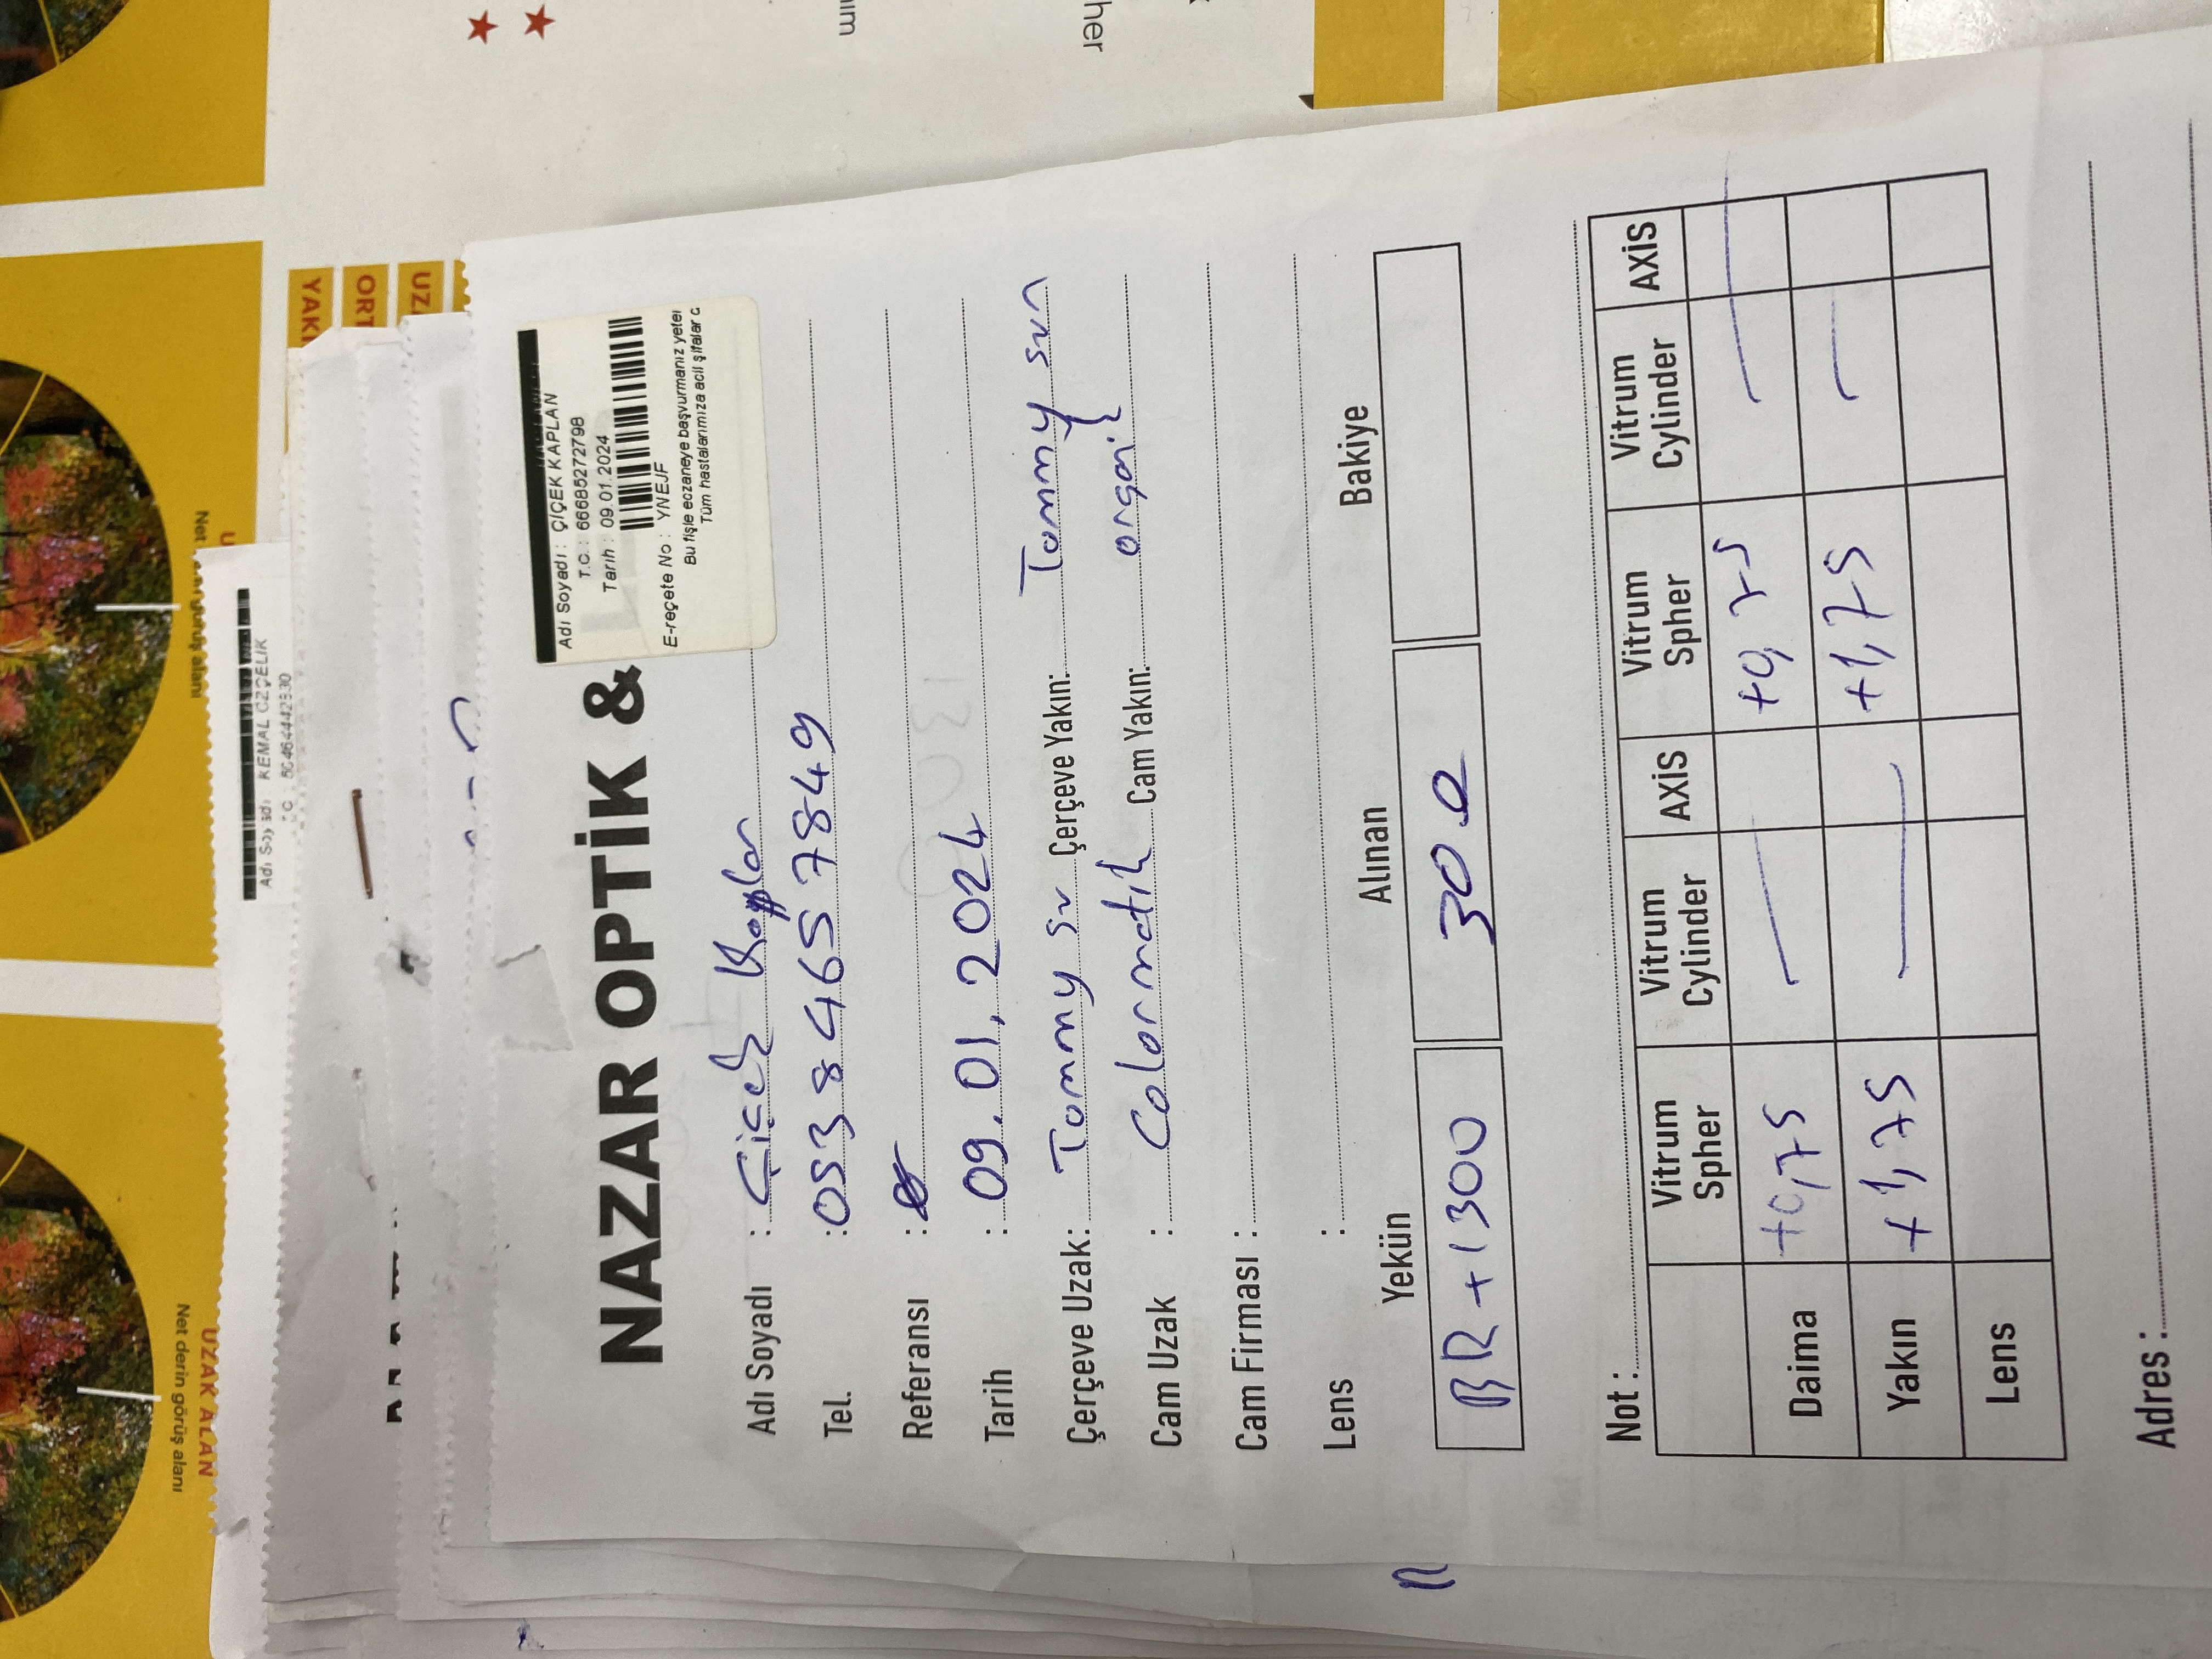 Net derin görüş alanı
UZAK ALAN
Adı Soyadı KEMAL ÖZÇELİK
NAZAR OPTİK &
Adı Soyadı : ÇİÇEK KAPLAN
T.C. : 66685272798
Tarih : 09.01.2024
E-reçete No : YNEJF
Bu fişle eczaneye başvurmanız yeter
Tüm hastalarımıza acil şifalar d
Adı Soyadı : Çiçek Kaplan
Tel. : 0538 465 7849
Referansı :
Tarih : 09.01.2024
Çerçeve Uzak: Tommy sv Çerçeve Yakın: Tommy sun
Cam Uzak : Colormatik Cam Yakın: organik
Cam Firması :
Lens :
Yekün Alınan Bakiye
BR+1300 300
Not :
Vitrum Spher Vitrum Cylinder AXİS Vitrum Spher Vitrum Cylinder AXİS
Daima +0,75 — +0,75 —
Yakın +1,75 — +1,75 —
Lens
Adres :